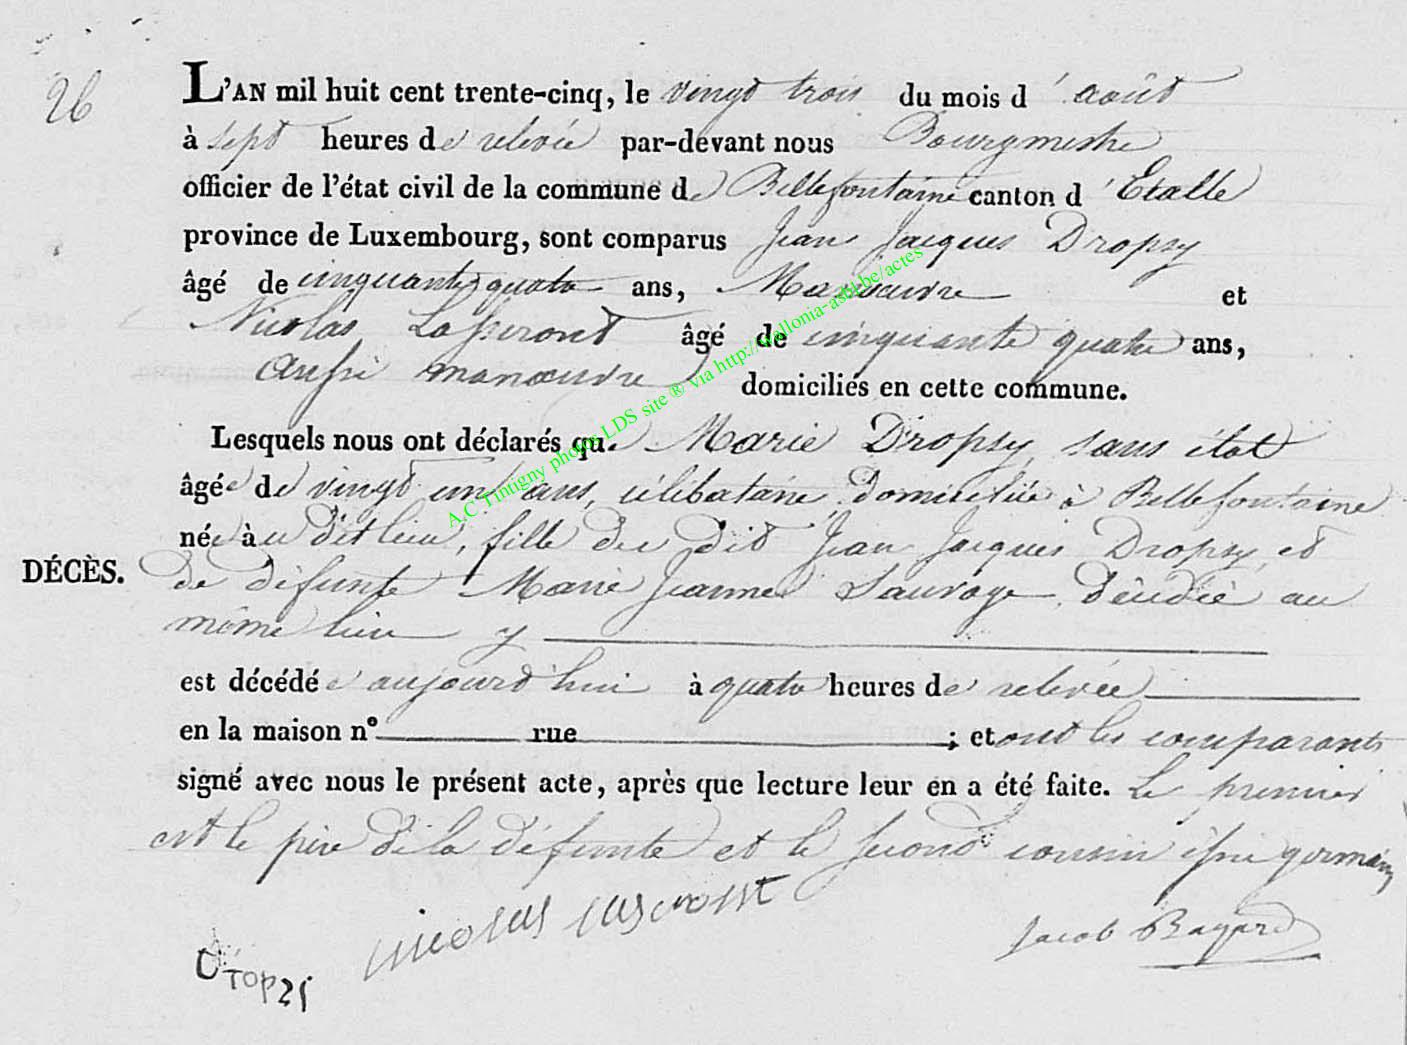 26
L'AN mil huit cent trente-cinq, le vingt trois du mois d'août
à sept heures de relevée par-devant nous Bourgmestre
officier de l'état civil de la commune de Bellefontaine canton d'Etalle
province de Luxembourg, sont comparus Jean Jacques Dropsy
âgé de cinquante quatre ans, Manœuvre et
Nicolas âgé de cinquante quatre ans,
Aussi manœuvre domiciliés en cette commune.
Lesquels nous ont déclarés que Marie Dropsy sans état
âgée de vingt un ans, célibataire domiciliée à Bellefontaine
née au dit lieu, fille du dit Jean Jacques Dropsy et
DÉCÈS.
de défunte Marie Jeanne Sauvage, décédée au
même lieu
est décédée aujourd'hui à quatre heures de relevée
en la maison n° rue ; et ont les comparants
signé avec nous le présent acte, après que lecture leur en a été faite. Le premier
est le père de la défunte et le second cousin issu germain
Nicolas
Jacob Bayard
Dropsi
A.C Tintigny photos LDS site ® via http://wallonia-asbl.be/actes